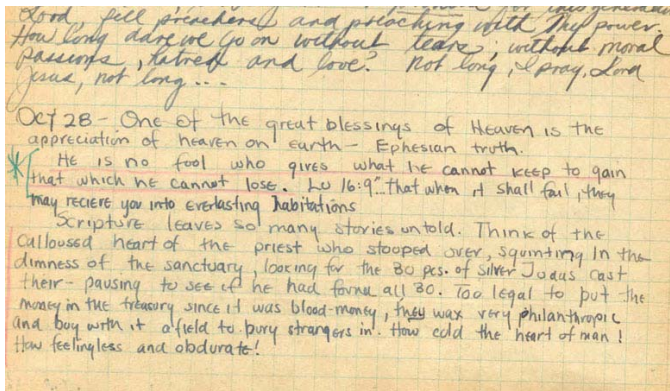 Lord, fill preachers and preaching with Thy power.
How long dare we go on without tears, without moral
passions, hatred and love? Not long, I pray, Lord
Jesus, not long...
Oct 28 - One of the great blessings of Heaven is the
appreciation of heaven on earth - Ephesian truth.
* He is no fool who gives what he cannot keep to gain
that which he cannot lose. Lu 16:9 "...that when it shall fail, they
may reciere you into everlasting habitations
Scripture leaves so many stories untold. Think of the
calloused heart of the priest who stooped over, squinting in the
dimness of the sanctuary, looking for the 30 pcs. of silver Judas cast
their - pausing to see if he had found all 30. Too legal to put the
money in the treasury since it was blood-money, they wax very philanthropic
and buy with it a field to bury strangers in. How cold the heart of man!
How feelingless and obdurate!